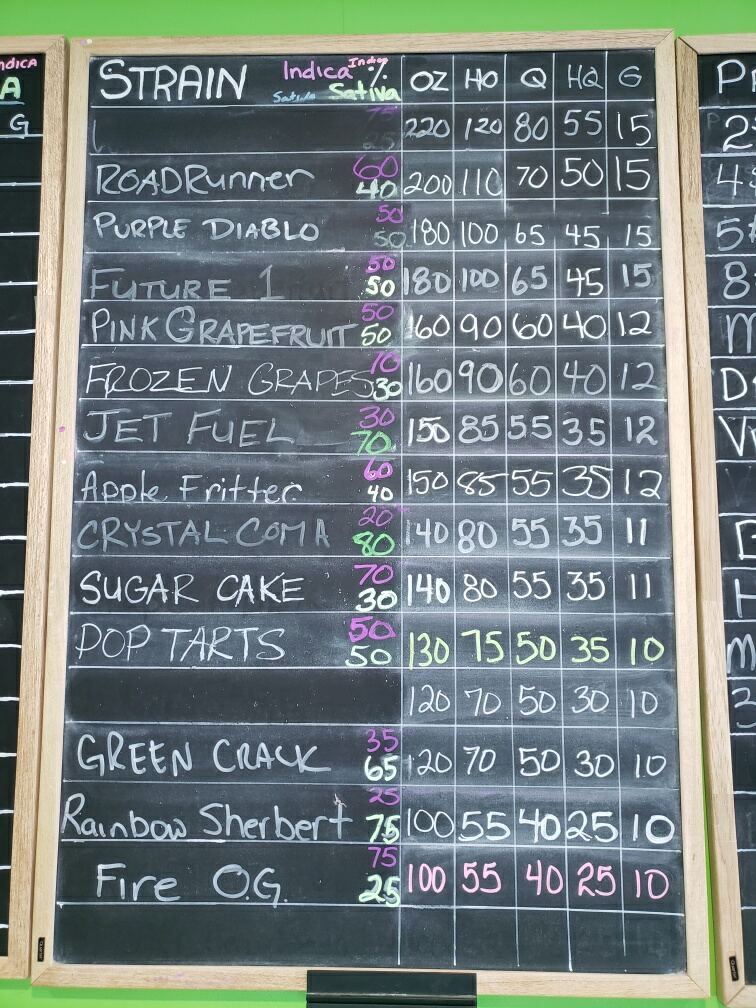 STRAIN Indica Indica % Sativa Sativa OZ HO Q HQ G
75 25 220 120 80 55 15
ROADRunner 60 40 200 110 70 50 15
PURPLE DIABLO 50 50 180 100 65 45 15
FUTURE 1 50 50 180 100 65 45 15
PINK GRAPEFRUIT 50 50 160 90 60 40 12
FROZEN GRAPES 70 30 160 90 60 40 12
JET FUEL 30 70 150 85 55 35 12
Apple Fritter 60 40 150 85 55 35 12
CRYSTAL COMA 20 80 140 80 55 35 11
SUGAR CAKE 70 30 140 80 55 35 11
POP TARTS 50 50 130 75 50 35 10
120 70 50 30 10
GREEN CRACK 35 65 120 70 50 30 10
Rainbow Sherbert 25 75 100 55 40 25 10
Fire O.G. 75 25 100 55 40 25 10
INDICA
A
G